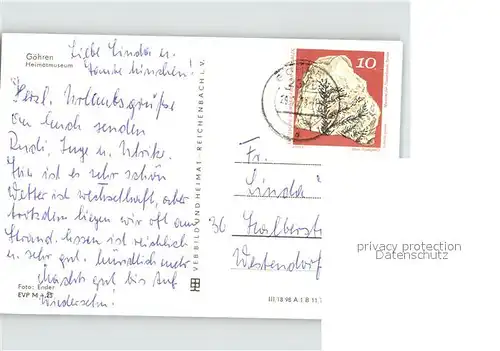 Göhren
Heimatmuseum
Liebe Linda u.
Familie
Herzl. Urlaubsgrüße
an Euch senden
Rudi, Inge u. Ulrike.
Hier ist es sehr schön
Wetter ist wechselhaft, aber
trotzdem liegen wir oft am
Strand. Essen ist reichlich
u. sehr gut. Mündlich mehr
Machts gut bis Auf
Wiedersehn!
Foto: Ender
EVP M
VEB BILD UND HEIMAT · REICHENBACH I. V.
10
Fr.
Linda
36 Halberst
Westendorf
III/18/98 A 1 B 11
privacy protection
Datenschutz